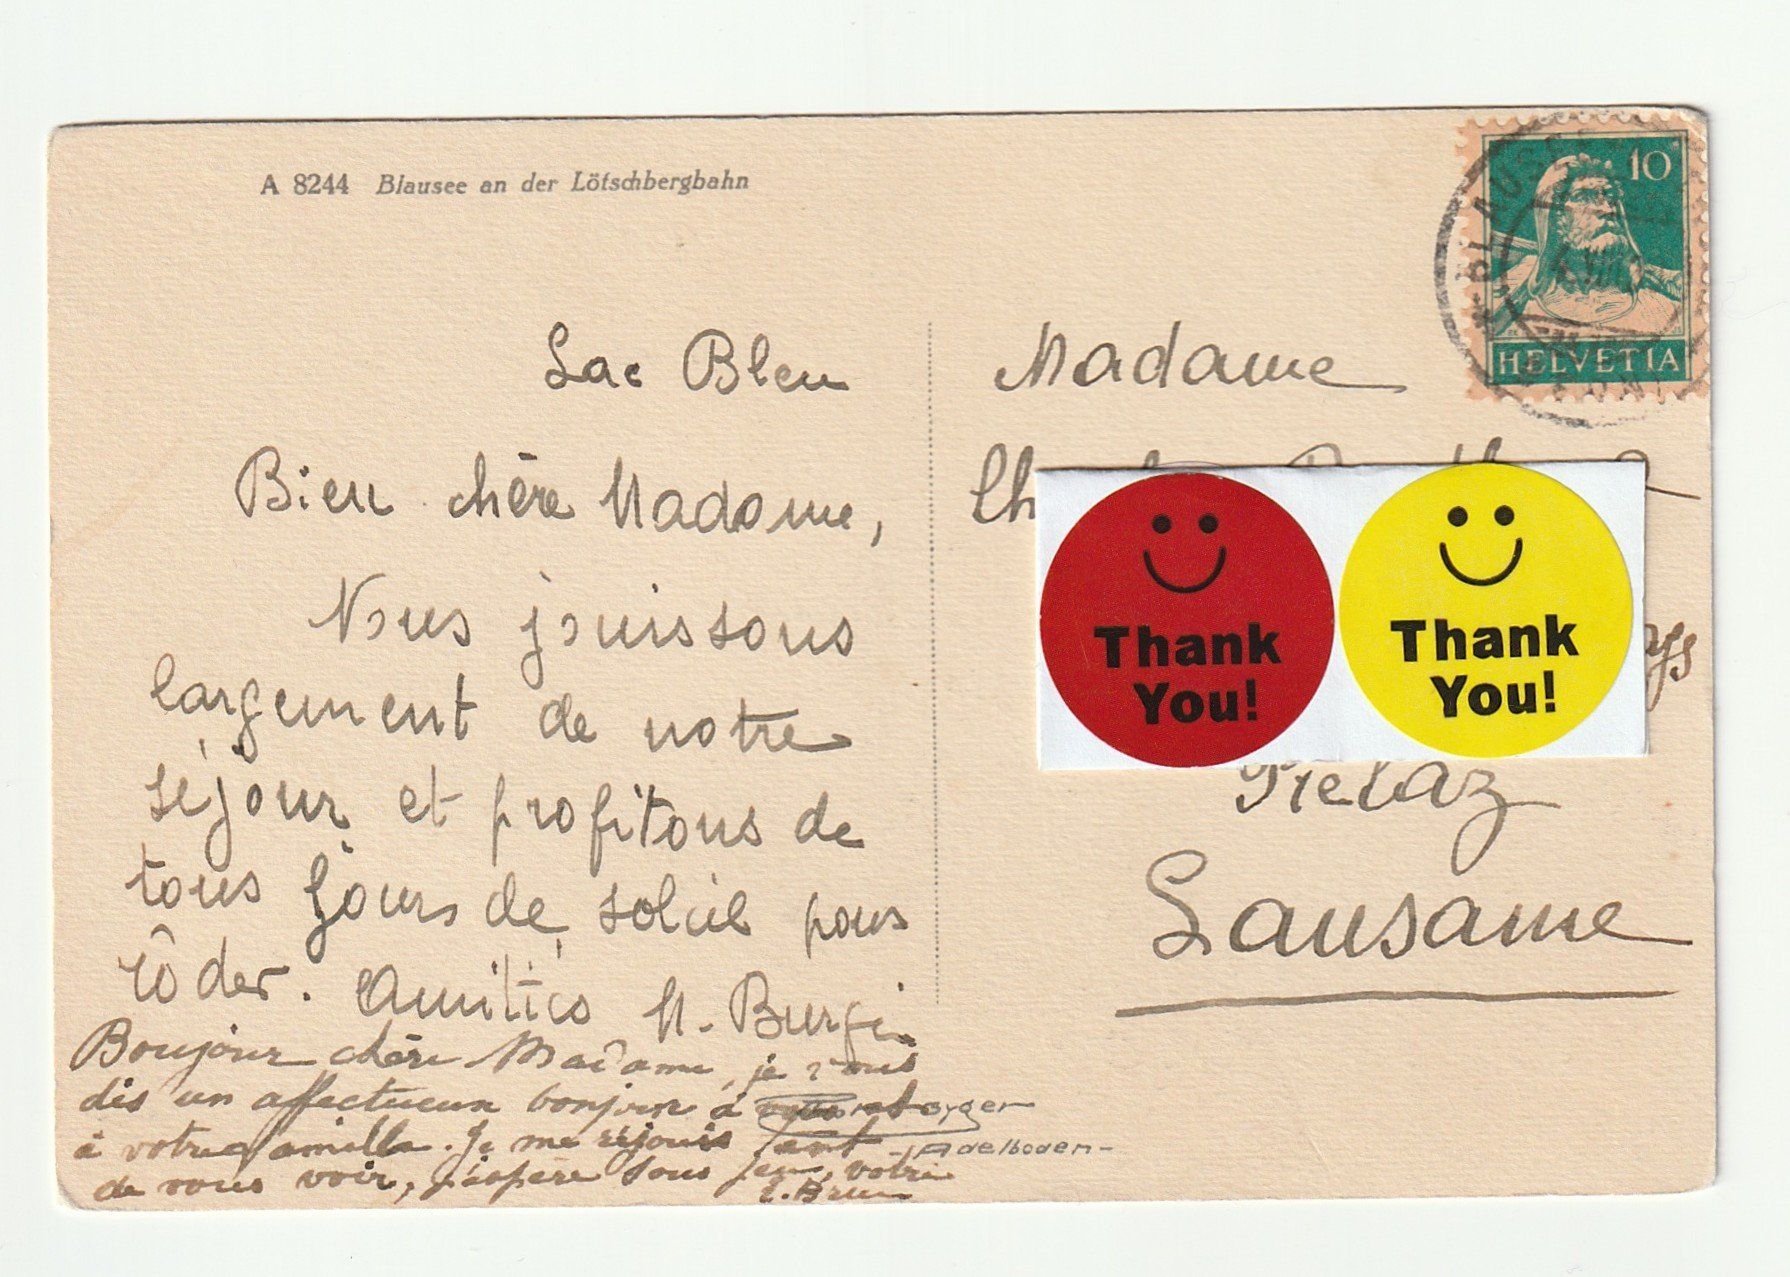 A 8244 Blausee an der Lötschbergbahn
10
HELVETIA
BLAUSEE
Lac Bleu
Bien chère Madame,
Nous jouissons
largement de notre
séjour et profitons de
tous jours de soleil pour
rôder. Amitiés M. Burgi
Bonjour chère Madame, je vous
dis un affectueux bonjour à
à votre famille. Je me réjouis tant
de vous voir, j'espère sous peu, votre
E. Brun
Adelboden
Madame
Ch
ays
Prélaz
Lausanne
Thank
You!
Thank
You!